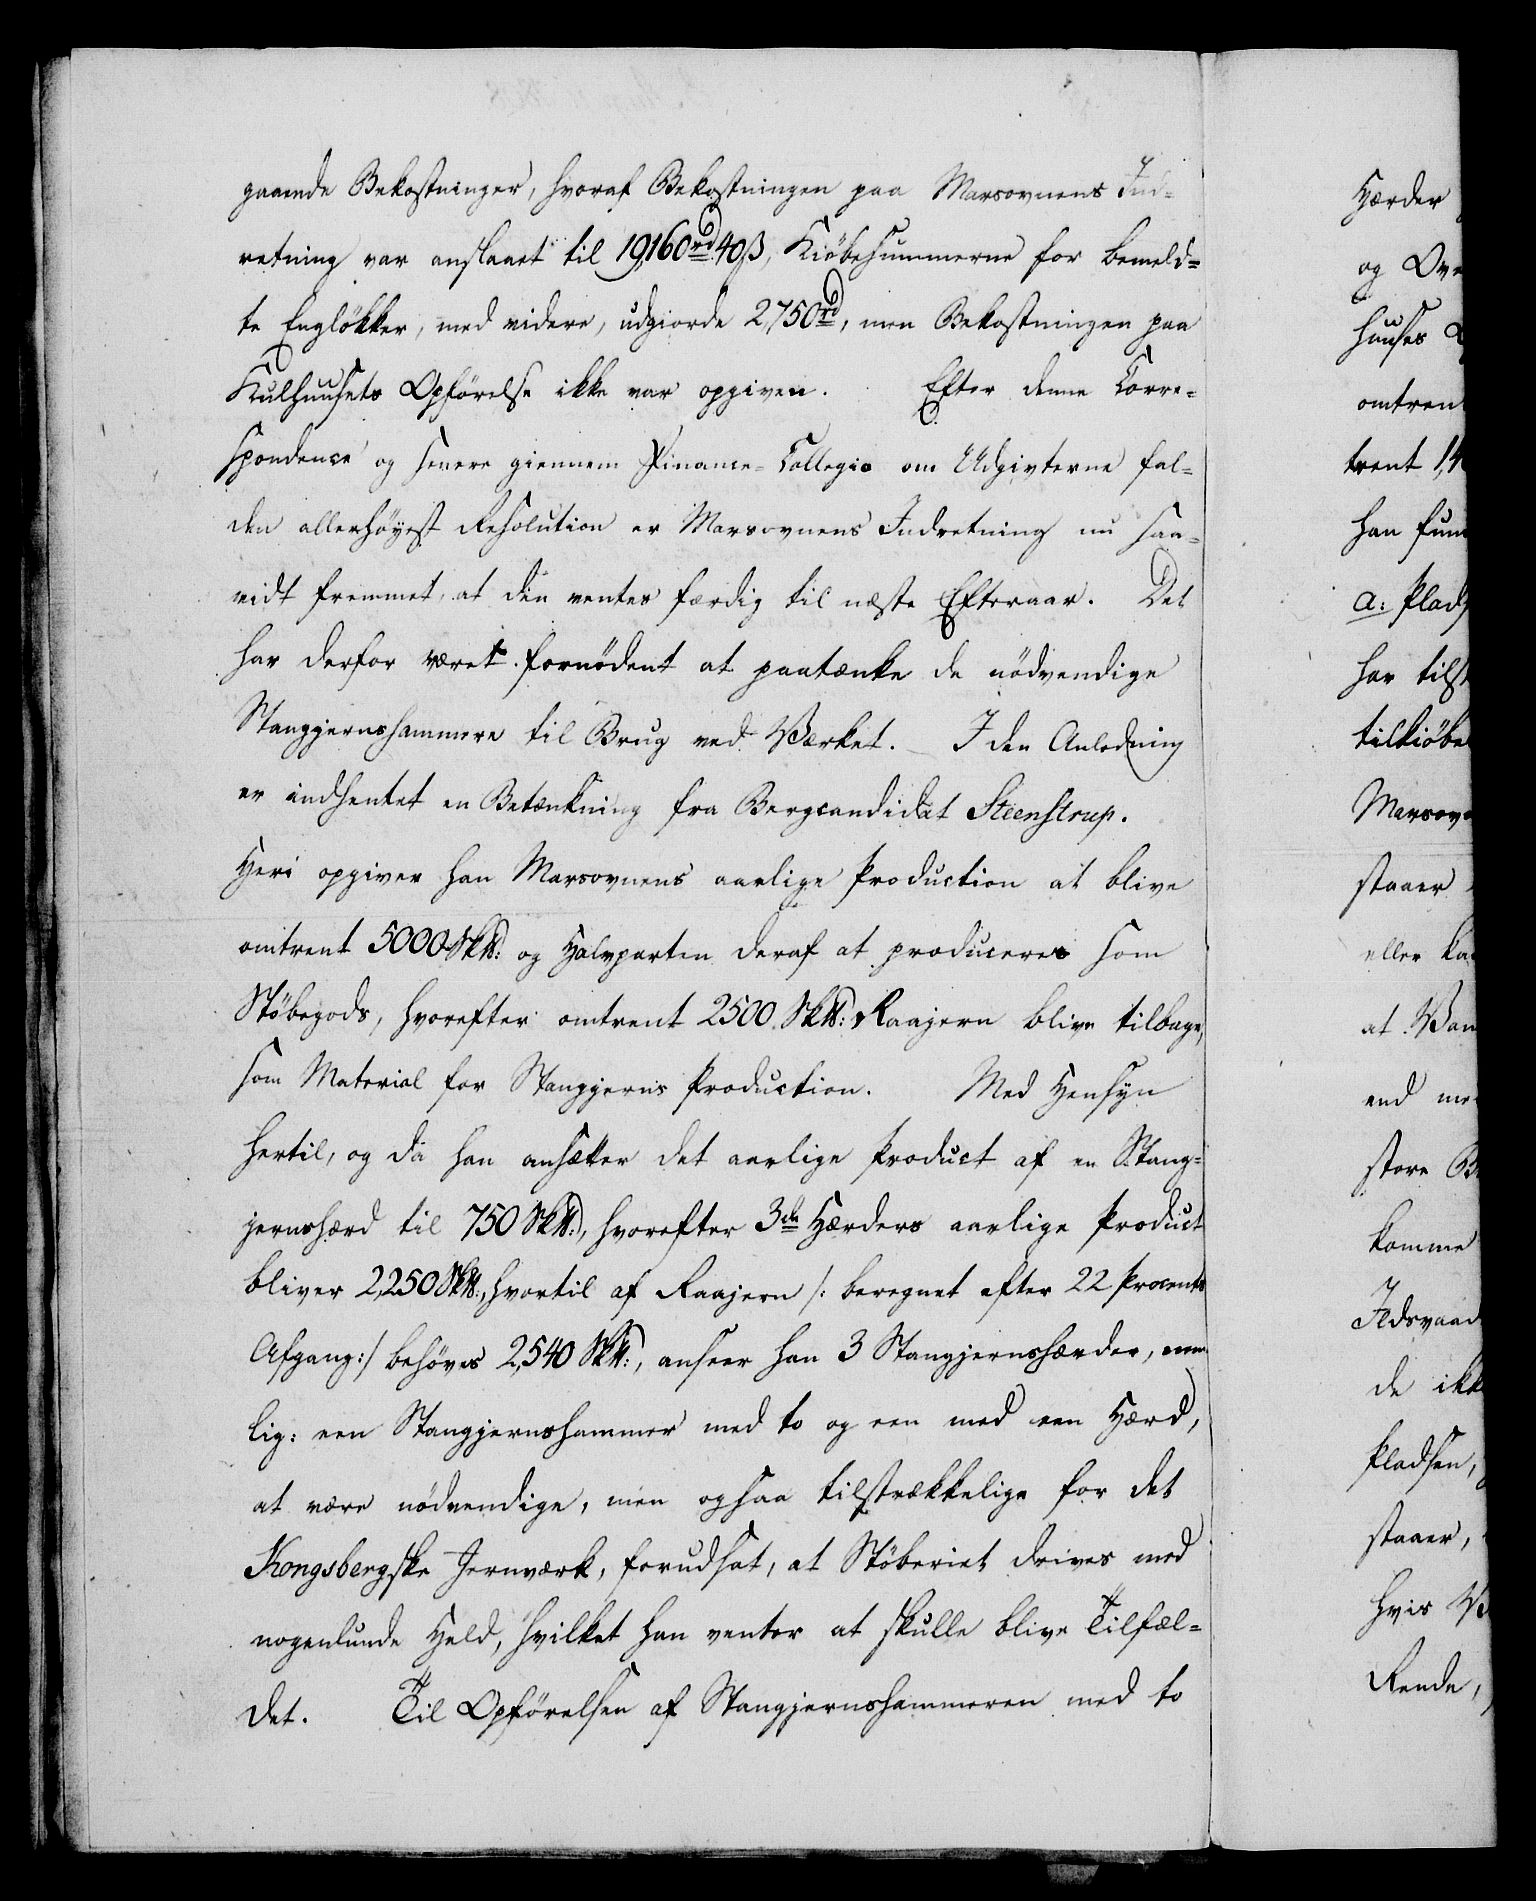 gaaende Bekostninger, hvoraf Bekostningen paa Marsovnens Ind-
retning var anslaaet til 19,160rd 40ß, Kiöbesummerne for bemeld=
te Englökker, med videre, udgiorde 2,750rd, men Bekostningen paa
Kulhuusets Opförelse ikke var opgiven. Efter denne Corre-
spondence og senere giennem Finance-Collegio om Udgivterne fal-
den allerhöyest Resolution er Marsovnens Indretning nu saa-
vidt fremmet, at den ventes færdig til næste Efteraar. Det
har derfor været fornödent at paatænke de nödvendige
Stangjernshammere til Brug ved Værket. I den Anledning
er indhentet en Betænkning fra Bergcandidat Steenstrup.
Heri opgiver han Marsovnens aarlige Production at blive
omtrent 5000 Sk℔: og Halvparten deraf at produceres som
Stöbegods, hvorefter omtrent 2500 Sk℔: Raajern blive tilbage,
som Material for Stangjerns Production. Med Hensyn
hertil, og da han ansætter det aarlige Product af en Stang-
jernshærd til 750 Sk℔:, hvorefter 3de Hærders aarlige Product
bliver 2,250 Sk℔:, hvortil af Raajern /: beregnet efter 22 Procents
Afgang :/ behöves 2,540 Sk℔:, anseer han 3 Stangjernshærder, nem-
lig: een Stangjernshammer med to og een med een Hærd,
at være nödvendige, men ogsaa tilstrækkelige for det
Kongsbergske Jernværk, forudsat, at Stöberiet drives med
nogenlunde Held, hvilket han venter at skulle blive Tilfæl-
det. Til Opförelsen af Stangjernshammeren med to
Hærder
og Ov
huuses
omtren
trent 1,4
han fun
a: Plads
har tilst
tilkiöbe
Marsov
staaer
eller ka
at Van
end me
store B
komme
Ildsvaad
de ikk
Pladsen,
staaer,
hvis V
Rende,